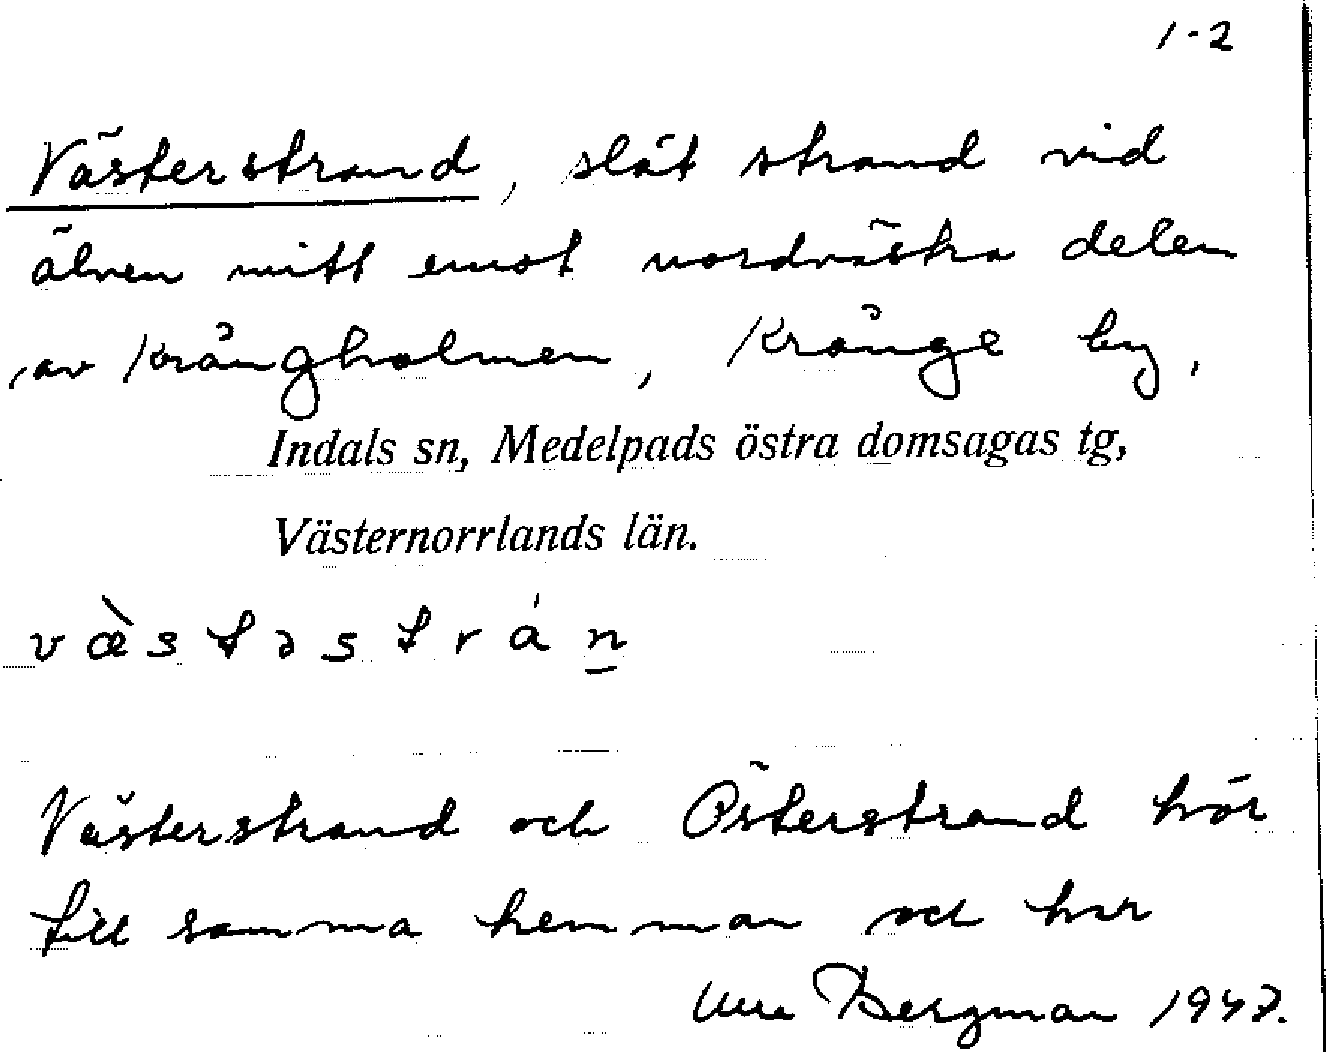 1-2
Västerstrand, slät strand vid
älven mitt emot nordvästra delen
av Krångholmen, Krånge by,
Indals sn, Medelpads östra domsagas tg,
Västernorrlands län.
v æ̀ s t ə s t r á n̲
Västerstrand och Österstrand hör
till samma hemman och har
Bergman 1947.